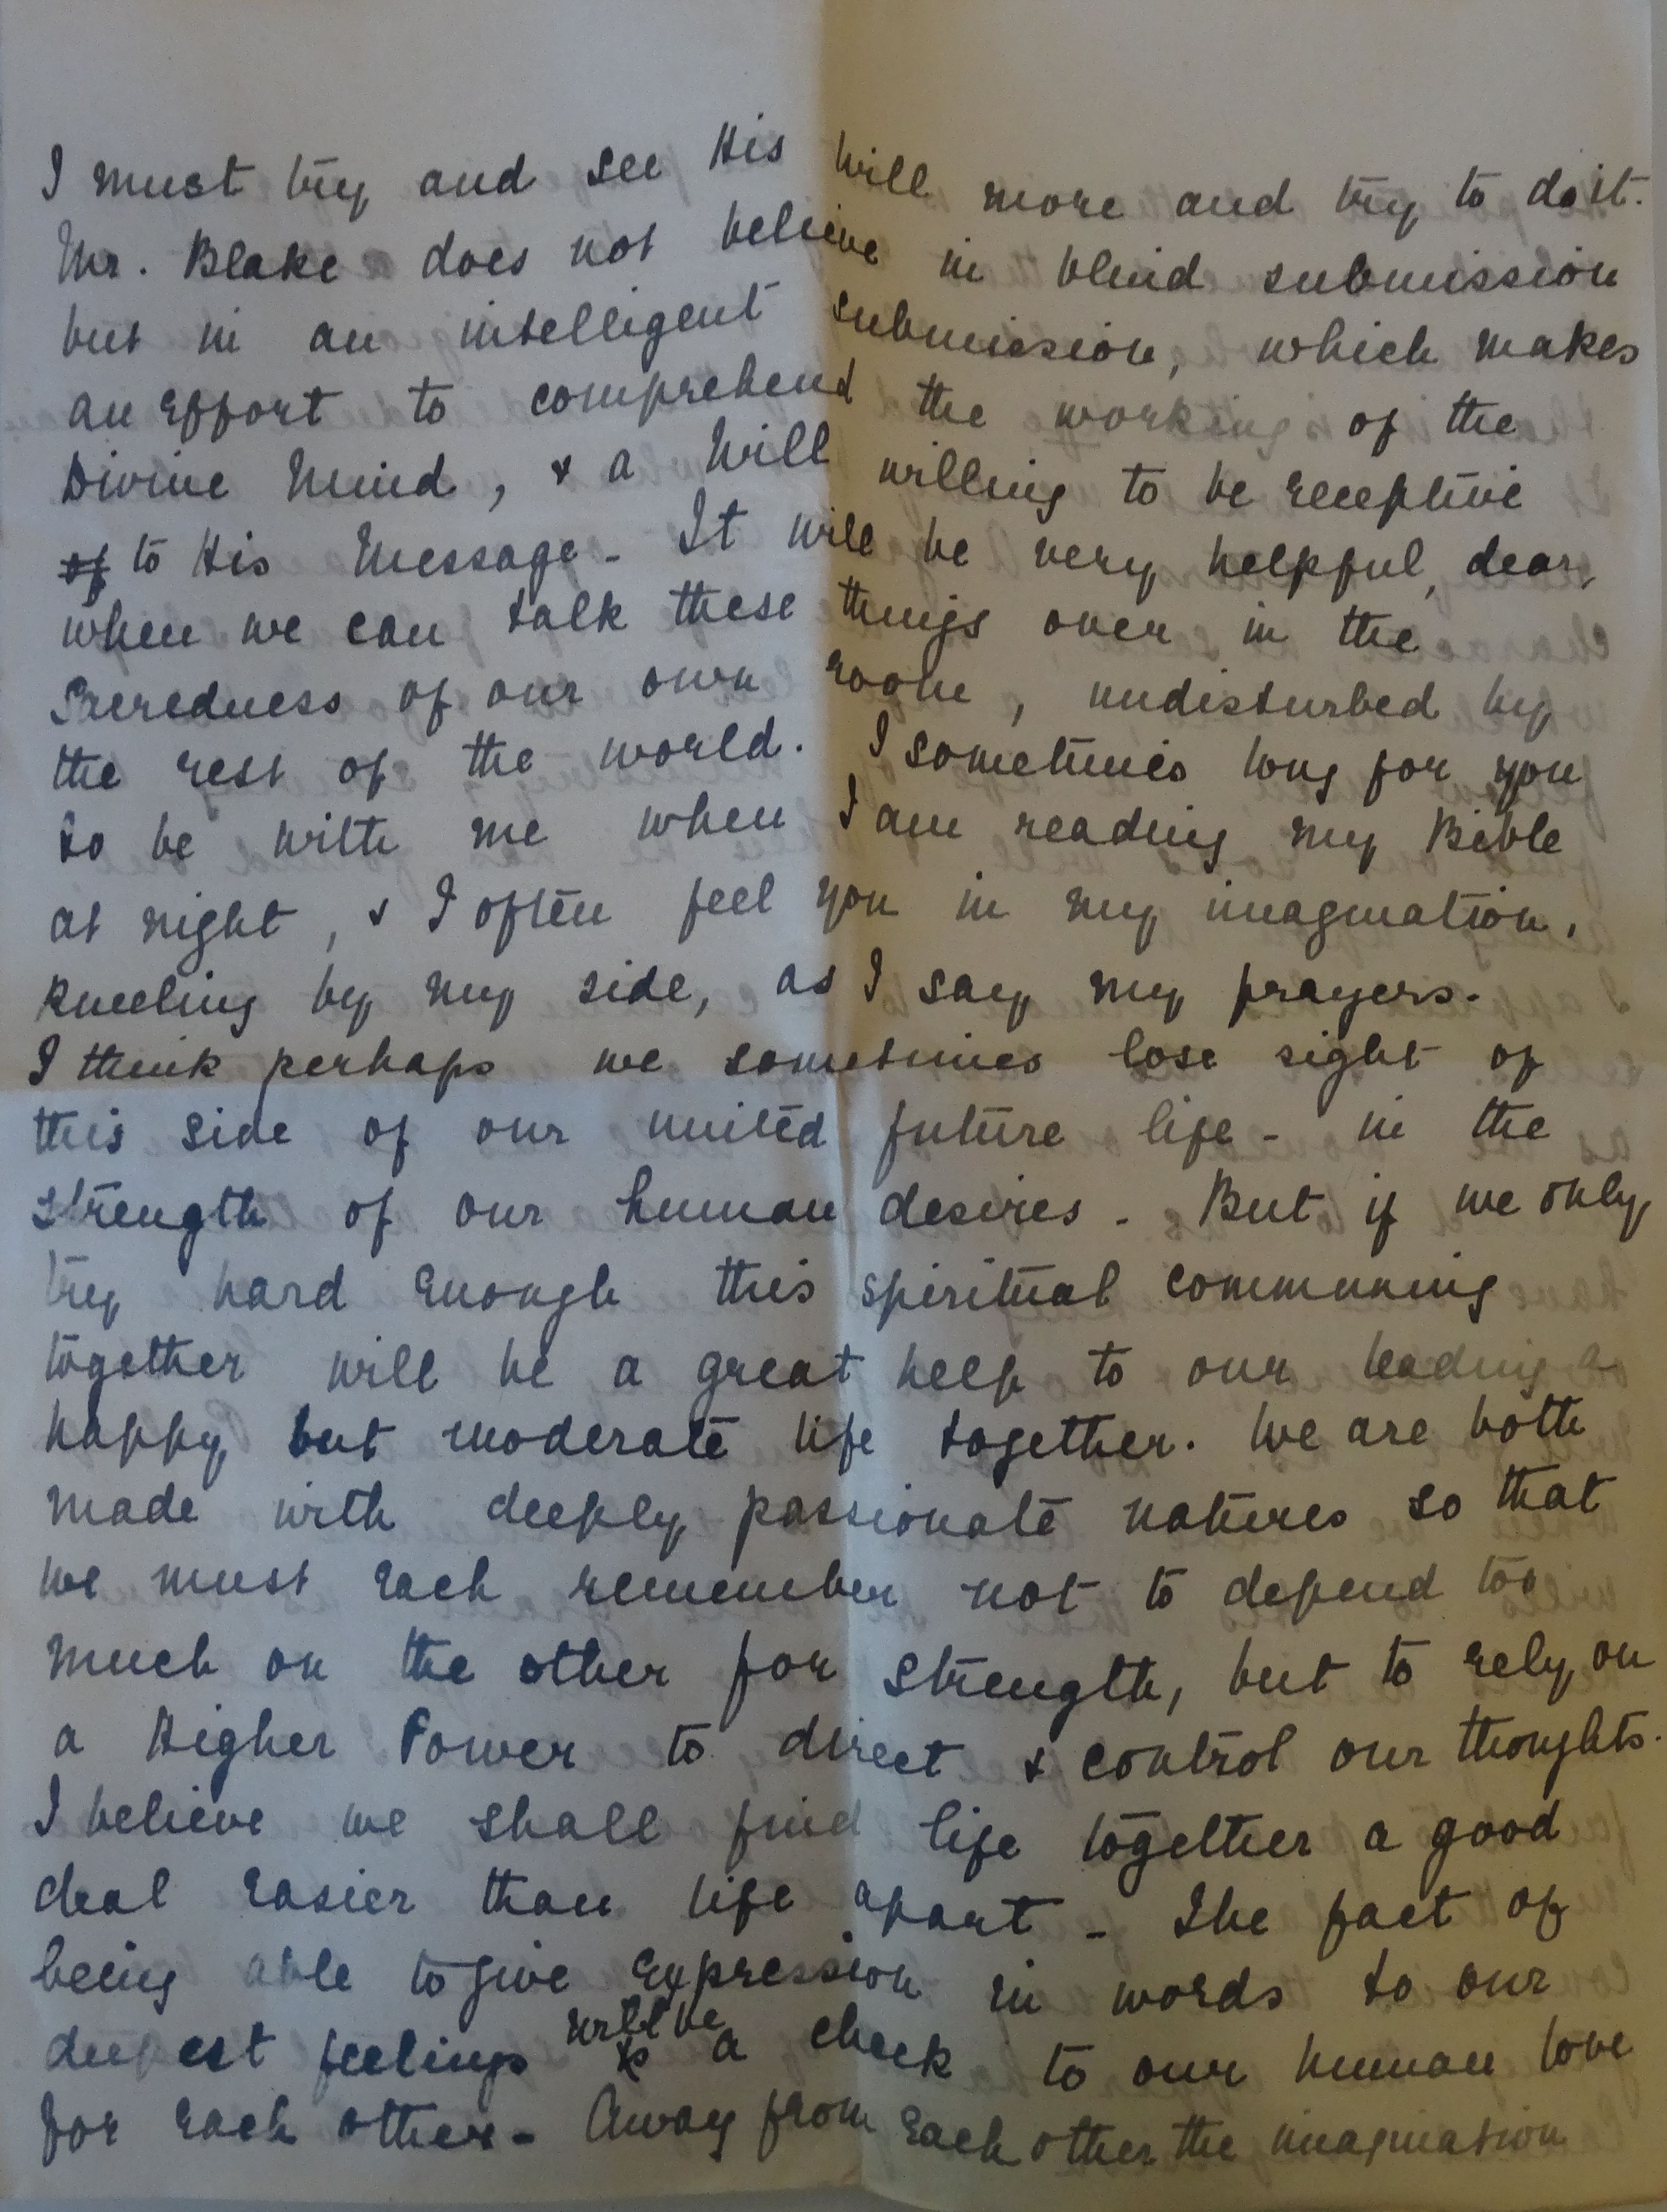 I must try and see His Will more and try to do it.
Mr. Blake does not believe in blind submission
but in an intelligent submission, which makes
an effort to comprehend the working of the
Divine Mind, & a Will willing to be receptive
of to His Message - It will be very helpful, dear,
when we can talk these things over in the
Sacredness of our own room, undisturbed by
the rest of the world. I sometimes long for you
to be with me when I am reading my Bible
at night, & I often feel you in my imagination,
kneeling by my side, as I say my prayers.
I think perhaps we sometimes lose sight of
this side of our united future life - in the
strength of our human desires - But if we only
try hard enough this spiritual communing
together will be a great help to our leading a
happy but moderate life together. We are both
made with deeply passionate natures so that
we must each remember not to depend too
much on the other for strength, but to rely on
a Higher Power to direct & control our thoughts.
I believe we shall find life together a good
deal easier than life apart - The fact of
being able to give expression in words to our
deepest feelings will be a check to our human love
for each other - Away from each other the imagination